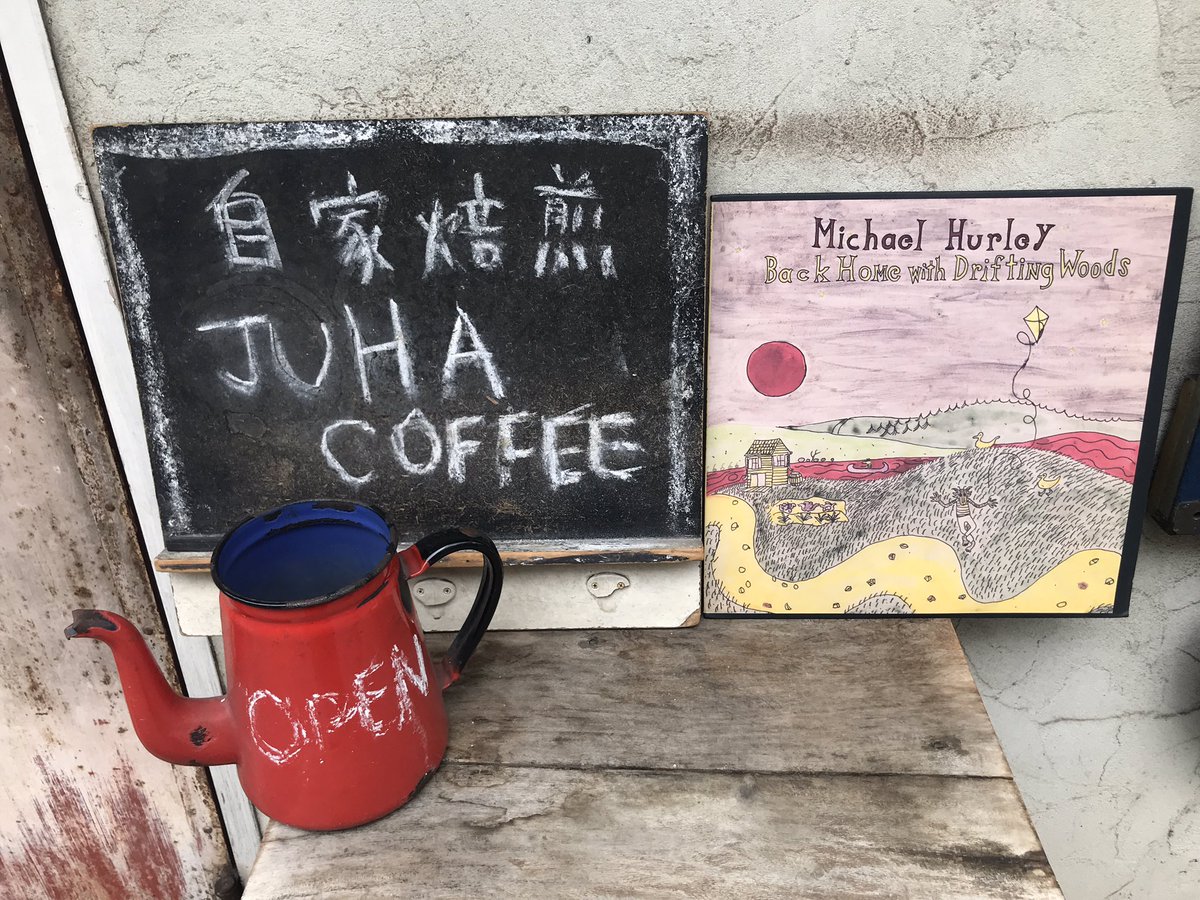 自家焙煎
JUHA
COFFEE
OPEN
Michael Hurley
Back Home with Drifting Woods